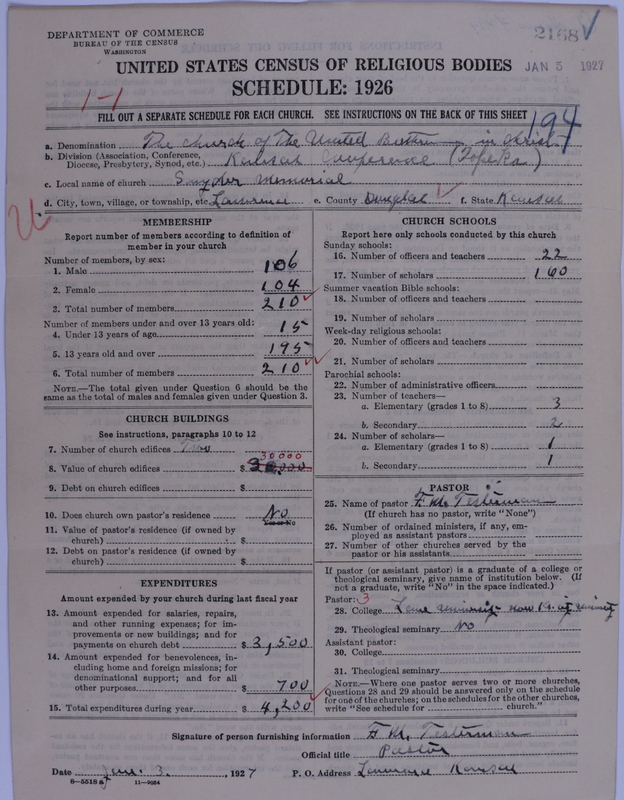 DEPARTMENT OF COMMERCE
BUREAU OF THE CENSUS
WASHINGTON
2168
JAN 5 1927
UNITED STATES CENSUS OF RELIGIOUS BODIES
SCHEDULE: 1926
1-1
FILL OUT A SEPARATE SCHEDULE FOR EACH CHURCH. SEE INSTRUCTIONS ON THE BACK OF THIS SHEET
194
a. Denomination The Church of The United Brethren in Christ
b. Division (Association, Conference, Diocese, Presbytery, Synod, etc.) Kansas Conference (Topeka)
c. Local name of church Snyder Memorial
d. City, town, village, or township, etc. Lawrence e. County Douglas f. State Kansas
MEMBERSHIP
Report number of members according to definition of member in your church
Number of members, by sex:
1. Male 106
2. Female 104
3. Total number of members 210
Number of members under and over 13 years old:
4. Under 13 years of age 15
5. 13 years old and over 195
6. Total number of members 210
NOTE.—The total given under Question 6 should be the same as the total of males and females given under Question 3.
CHURCH BUILDINGS
See instructions, paragraphs 10 to 12
7. Number of church edifices Two
30000
8. Value of church edifices $
9. Debt on church edifices $
10. Does church own pastor's residence? No
Yes or No
11. Value of pastor's residence (if owned by church) $
12. Debt on pastor's residence (if owned by church) $
EXPENDITURES
Amount expended by your church during last fiscal year
13. Amount expended for salaries, repairs, and other running expenses; for improvements or new buildings; and for payments on church debt $ 3,500
14. Amount expended for benevolences, including home and foreign missions; for denominational support; and for all other purposes $ 700
15. Total expenditures during year $ 4,200
CHURCH SCHOOLS
Report here only schools conducted by this church
Sunday schools:
16. Number of officers and teachers 22
17. Number of scholars 160
Summer vacation Bible schools:
18. Number of officers and teachers
19. Number of scholars
Week-day religious schools:
20. Number of officers and teachers
21. Number of scholars
Parochial schools:
22. Number of administrative officers
23. Number of teachers—
a. Elementary (grades 1 to 8) 3
b. Secondary 2
24. Number of scholars—
a. Elementary (grades 1 to 8) 1
b. Secondary 1
PASTOR
25. Name of pastor Testerman
(If church has no pastor, write "None")
26. Number of ordained ministers, if any, employed as assistant pastors
27. Number of other churches served by the pastor or his assistants
If pastor (or assistant pastor) is a graduate of a college or theological seminary, give name of institution below. (If not a graduate, write "No" in the space indicated.)
Pastor: 3
28. College Lane University now
29. Theological seminary No
Assistant pastor:
30. College
31. Theological seminary
NOTE.—Where one pastor serves two or more churches, Questions 28 and 29 should be answered only on the schedule for one of the churches; on the schedules for the other churches, write "See schedule for church."
Signature of person furnishing information Testerman
Official title Pastor
Date Jan. 3, 1927 P. O. Address Lawrence Kansas
8-5518 a 11-2084